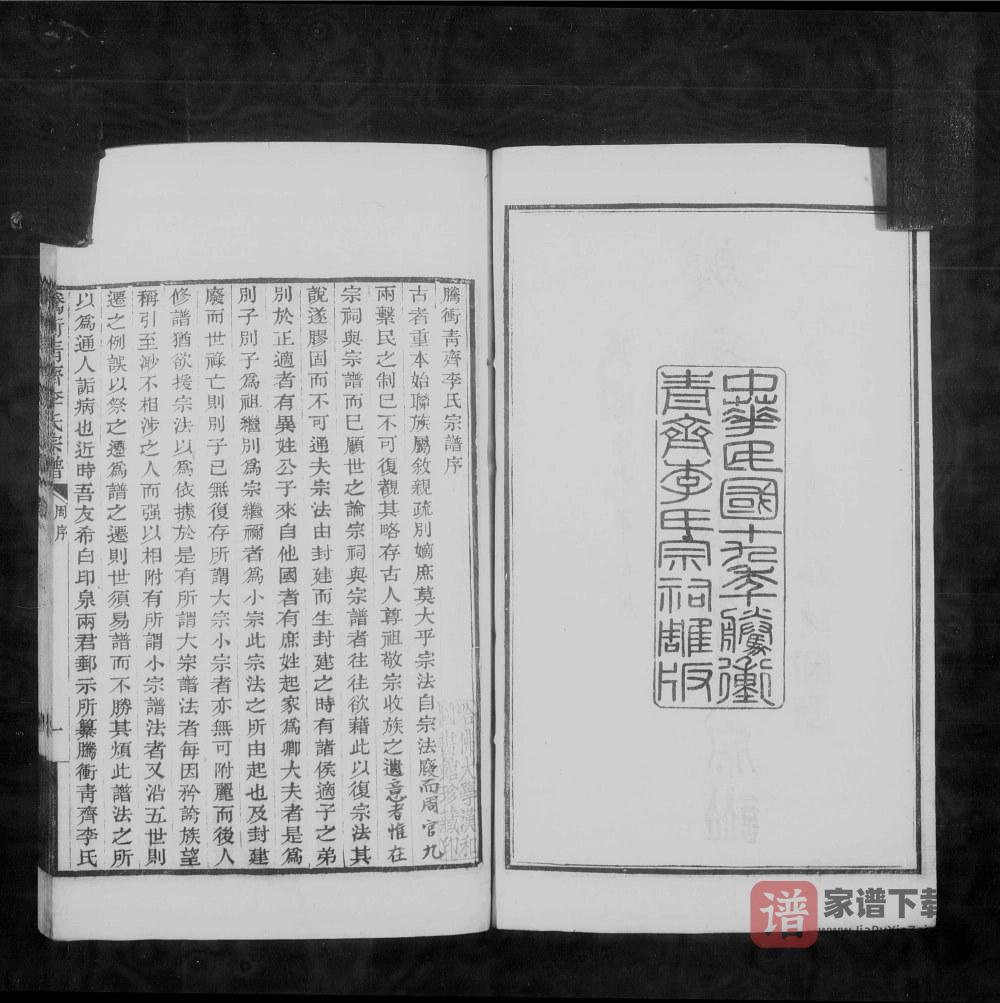 中華民國十九年騰衝
青齊李氏宗祠雕版
騰衝青齊李氏宗譜序
古者重本始聯族屬敘親疏別嫡庶莫大乎宗法自宗法廢而周官九
兩繫民之制巳不可復觀其略存古人尊祖敬宗收族之遺意者惟在
宗祠與宗譜而巳顧世之論宗祠與宗譜者往往欲藉此以復宗法其
說遂膠固而不可通夫宗法由封建而生封建之時有諸侯適子之弟
別於正適者有異姓公子來自他國者有庶姓起家爲卿大夫者是爲
別子別子爲祖繼別爲宗繼禰者爲小宗此宗法之所由起也及封建
廢而世祿亡則別子已無復存所謂大宗小宗者亦無可附麗而後人
修譜猶欲援宗法以爲依據於是有所謂大宗譜法者每因矜誇族望
稱引至渺不相涉之人而强以相附有所謂小宗譜法者又沿五世則
遷之例誤以祭之遷爲譜之遷則世須易譜而不勝其煩此譜法之所
以爲通人詬病也近時吾友希白印泉兩君郵示所纂騰衝青齊李氏
騰衝青齊李氏宗譜
周序
一
哈佛大學漢和
圖書館珍藏印
谱
家谱下载